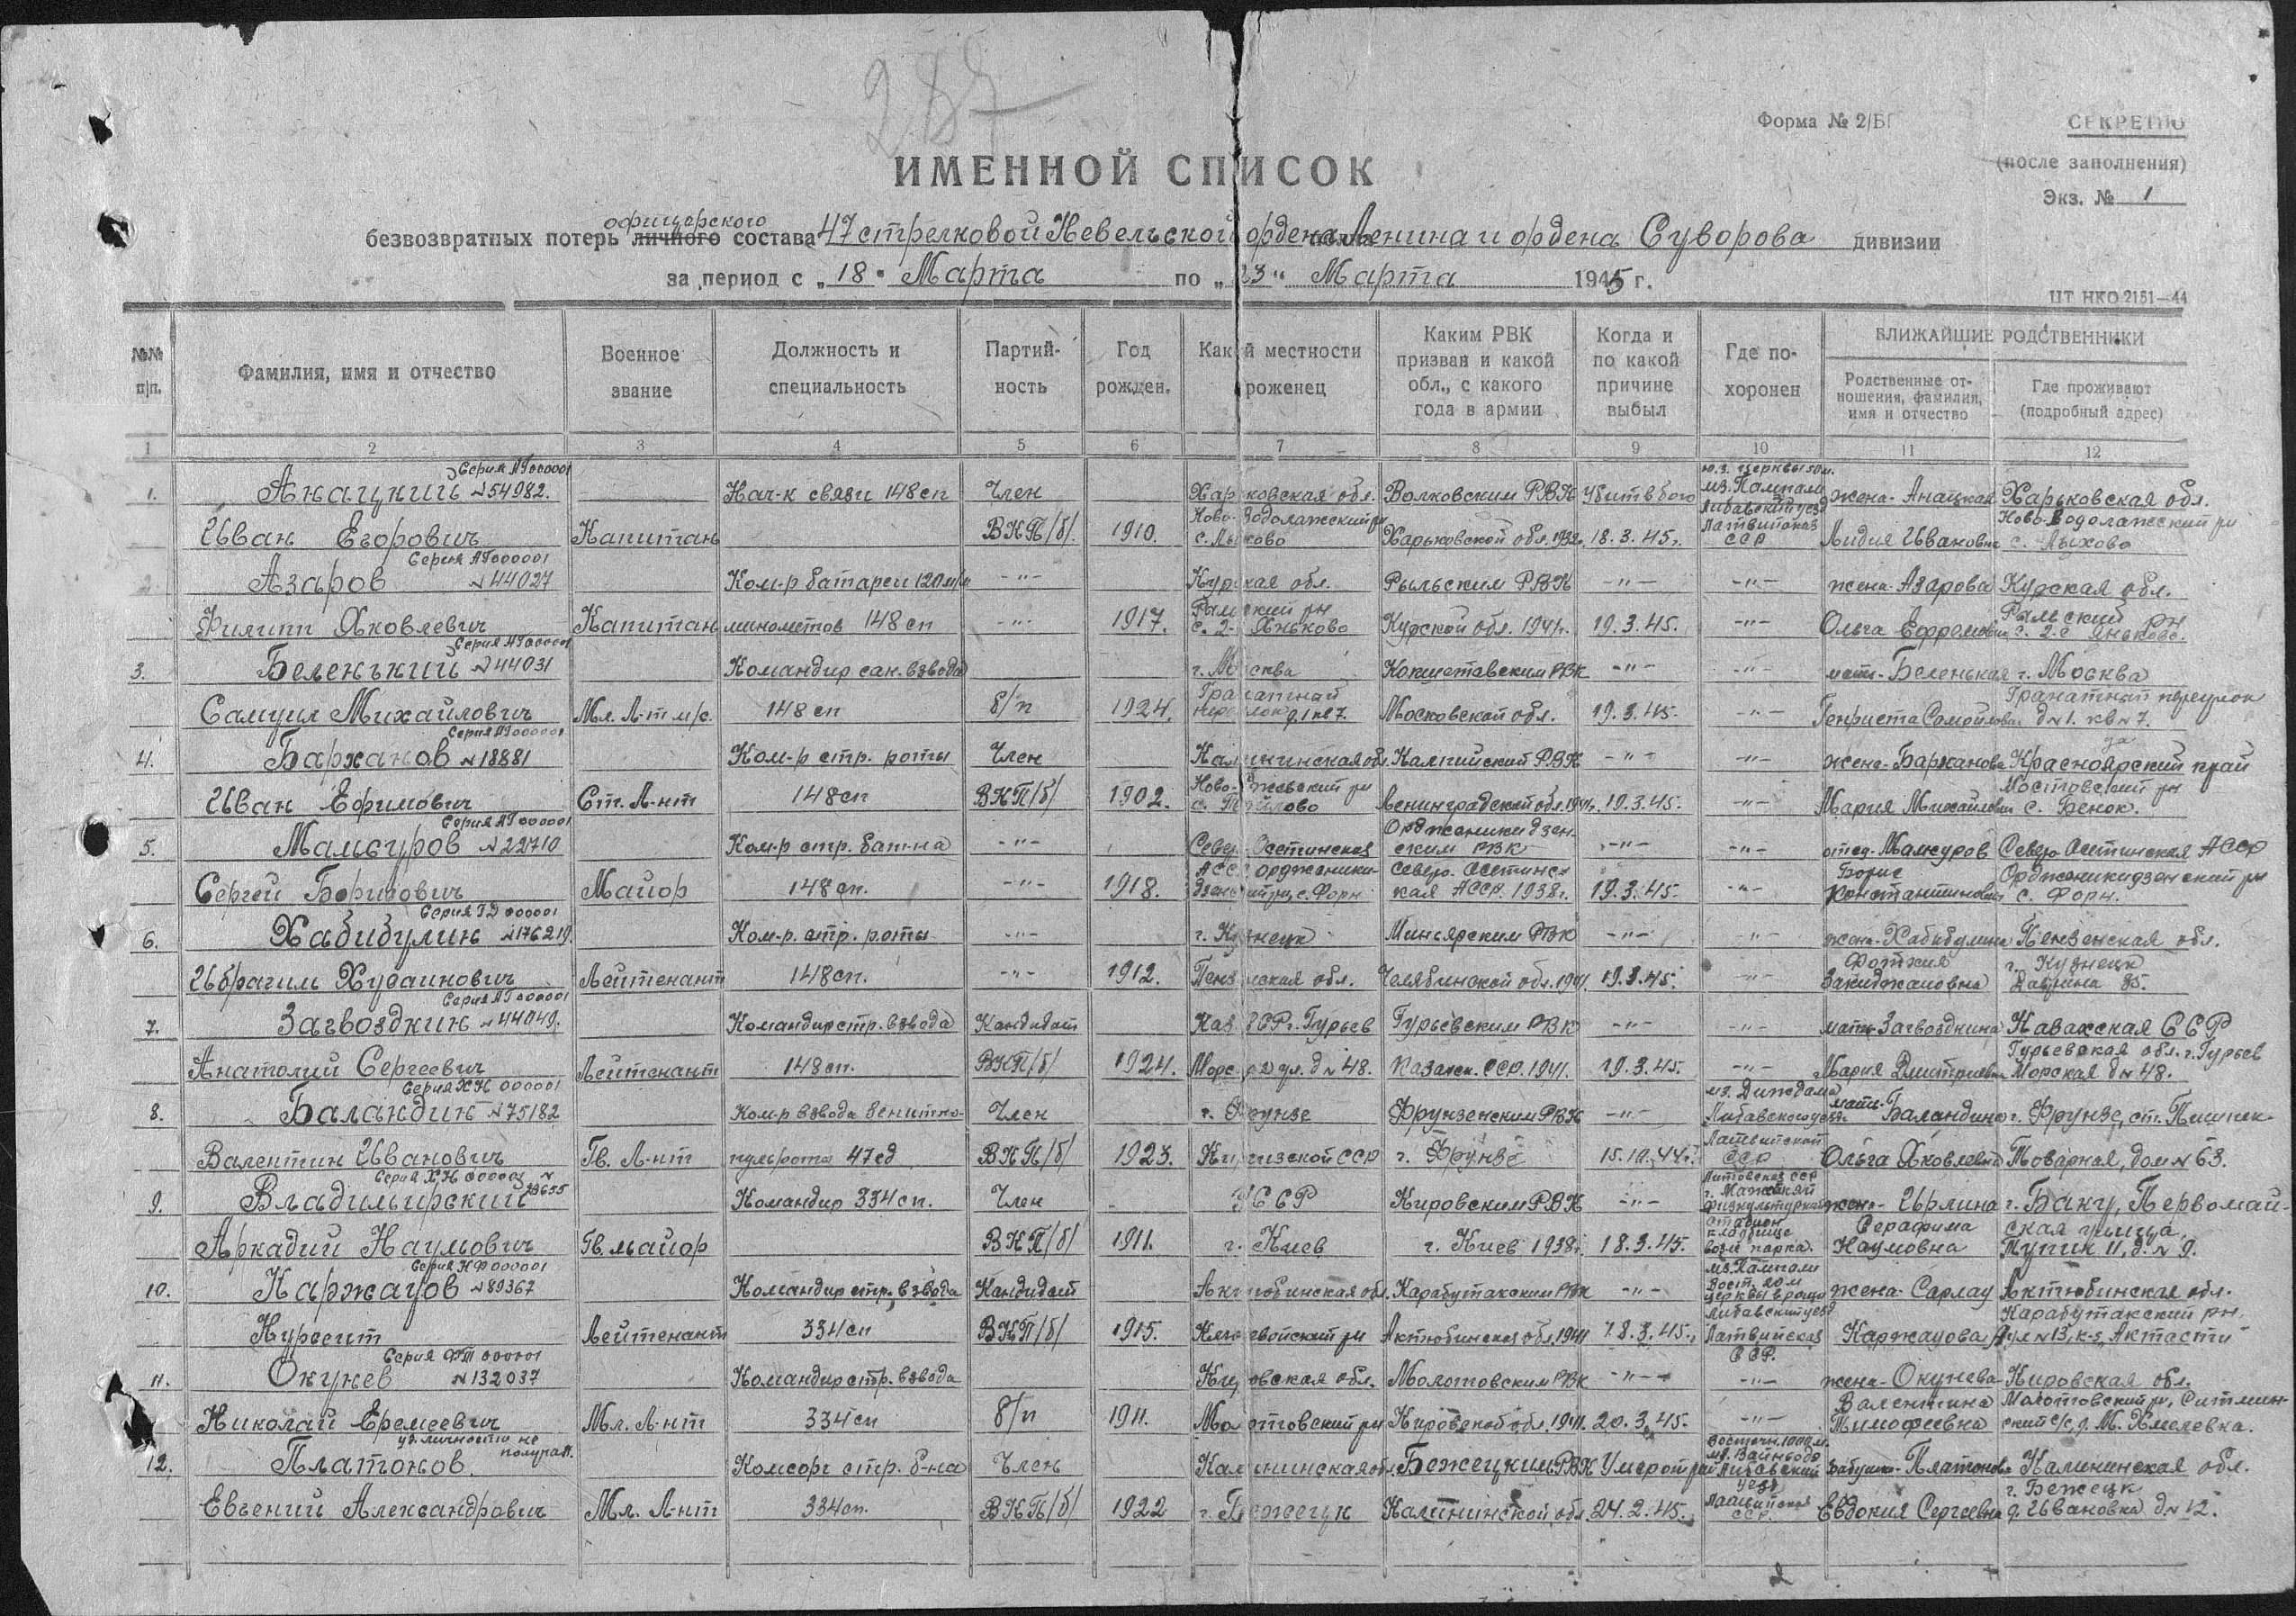 287
Форма № 2/БГ
СЕКРЕТНО
(после заполнения)
Экз. № 1
ИМЕННОЙ СПИСОК
офицерского
безвозвратных потерь личного состава 47 стрелковой Невельской ордена Ленина и ордена Суворова дивизии
за период с „18" Марта по „23" Марта 1945 г.
ЦТ НКО 2151—44
№№ п/п. Фамилия, имя и отчество Военное звание Должность и специальность Партийность Год рожден. Какой местности уроженец Каким РВК призван и какой обл., с какого года в армии Когда и по какой причине выбыл Где похоронен БЛИЖАЙШИЕ РОДСТВЕННИКИ
Родственные отношения, фамилия, имя и отчество Где проживают (подробный адрес)
1 2 3 4 5 6 7 8 9 10 11 12
Серия АГ 000001 ю.з. церквы 50 м.
1. Анацкий №54982. Нач-к связи 148 сп Член Харьковская обл. Волковским РВК Убит в бою мз. Пампали жена - Анацкая Харьковская обл.
Ново-Водолажский рн Либавский уезд Латвийская Ново-Водолажский рн
Иван Егорович Капитан ВКП/б/ 1910. с. Лыхово Харьковской обл. 1932г. 18.3.45г. ССР Лидия Ивановна с. Лыхово
Серия АГ 000001
2. Азаров №44027 Ком-р батареи 120 м/м -"- Курская обл. Рыльским РВК -"- -"- жена - Азарова Курская обл.
Филипп Яковлевич Капитан минометов 148 сп -"- 1917. с. 2- Яньково Курской обл. 1941г. 19.3.45. -"- Ольга Ефремовна с. 2-е Яньково.
Серия АГ 000001
3. Беленький №44031 Командир сан. взвода г. Москва РВК -"- -"- мать - Беленькая г. Москва
Гранатный Гранатный переулок
Самуил Михайлович Мл. Л-т м/с. 148 сп б/п 1924. переулок д.1 кв 7. Московской обл. 19.3.45. -"- Генриета Самойловна д№1. кв№7.
Серия АГ 000001
4. Баржанов №18881 Ком-р стр. роты Член Калининская обл. РВК -"- -"- жена - Баржанова Красноярский край
Ново-Ржевский рн Мостовский рн
Иван Ефимович Ст. Л-нт 148 сп ВКП/б/ 1902. Ленинградской обл. 1941г. 19.3.45. -"- Мария Михайловна с. Бенок.
Серия АГ 000001 Орджоникидзен-
5. Мамсуров №22710 Ком-р стр. бат-на -"- Север. Осетинская ским РВК -"- -"- отец - Мамсуров Северо Осетинская АССР
АССР Орджоники- Северо. Осетинс- Борис Орджоникидзенский рн
Сергей Борисович Майор 148 сп. -"- 1918. дзенский рн, с. Форн кая АССР. 1938г. 19.3.45. -"- Константинович с. Форн.
Серия ГД 000001
6. Хабибулин №176219. Ком-р. стр. роты -"- г. Кузнецк Миньярским РВК -"- -"- жена - Хабибулина Пензенская обл.
г. Кузнецк
Ибрагим Хусаинович Лейтенант 148 сп. -"- 1912. Пензенская обл. Челябинской обл. 1941. 19.3.45. -"- Закиджановна 85.
Серия АГ 000001
7. Загвоздкин №44049. Командир стр. взвода Кандидат Каз. ССР г. Гурьев Гурьевским РВК -"- -"- мать - Загвоздкина Казахская ССР
Гурьевская обл. г. Гурьев
Анатолий Сергеевич Лейтенант 148 сп. ВКП/б/ 1924. Морская ул. д №48. Казахск. ССР. 1941. 19.3.45. -"- Мария Дмитриевна Морская д №48.
Серия ХН 000001
8. Баландин №75182 Ком-р взвода зенитно- Член г. Фрунзе Фрунзенским РВК -"- Либавского уезда мать - Баландина г. Фрунзе, ст. Пишпек-
Латвийской
Валентин Иванович Гв. Л-нт пульрота 47сд ВКП/б/ 1923. Киргизской ССР г. Фрунзе 15.10.44г. ССР Ольга Яковлевна Товарная, дом №63.
Серия ХН 000001 № Литовская ССР
9. Владимирский Командир 334 сп. Член УССР Кировским РВК -"- жена - Ирлина г. Баку, Первомай-
стадион кладбище Серафима ская улица,
Аркадий Наумович Гв. майор ВКП/б/ 1911. г. Киев г. Киев 1938г. 18.3.45. возле парка. Наумовна Тупик 11, д. № 9.
Серия НФ 000001 мз. Пампали
10. Каржауов №89367 Командир стр. взвода Кандидат Актюбинская обл. Карабутакским РВК -"- церквы в роще жена - Сарлау Актюбинская обл.
Либавский уезд Карабутакский рн.
Нурсеит Лейтенант 334 сп ВКП/б/ 1915. Актюбинская обл. 1941 18.3.45. Латвийская Каржауова Аул №13, к-з „Актасты"
Серия ФТ 000001 ССР.
11. Окунев №132037 Командир стр. взвода Кировская обл. Молотовским РВК -"- -"- жена - Окунева Кировская обл.
Валентина Молотовский рн,
Николай Еремеевич Мл. Л-нт 334 сп б/п 1911. Молотовский рн Кировской обл. 1941. 20.3.45. -"- Тимофеевна с/с, д. М. Хмелевка.
уд. личности не получал. Восточн. 1000 м.
12. Платонов. Комсорг стр. б-на Член Калининская обл. Бежецким РВК Умер от ран Либавский бабушка - Платонова Калининская обл.
уезд г. Бежецк
Евгений Александрович Мл. Л-нт 334 сп. ВКП/б/ 1922 г. Бежецк Калининской обл. 24.2.45. Латвийская ССР. Евдокия Сергеевна д. Ивановка д№12.